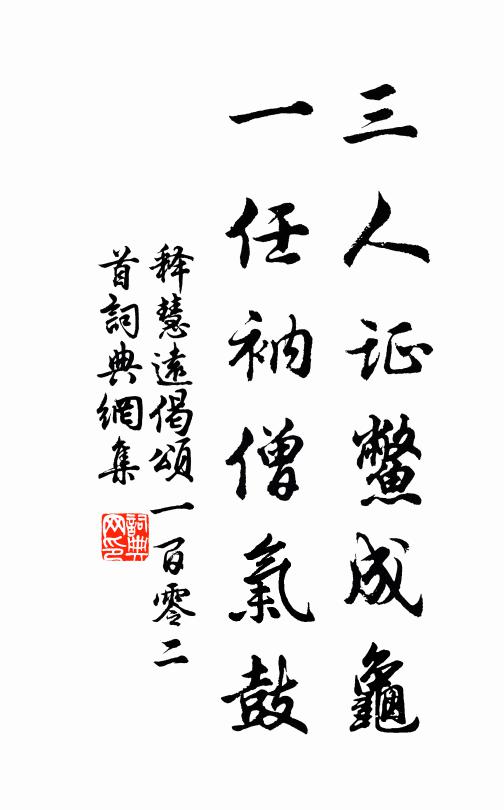 三人证鳖成龜
一任衲僧氣鼓
释慧遠偈頌一百零二
首詞典網集
詞典
网印